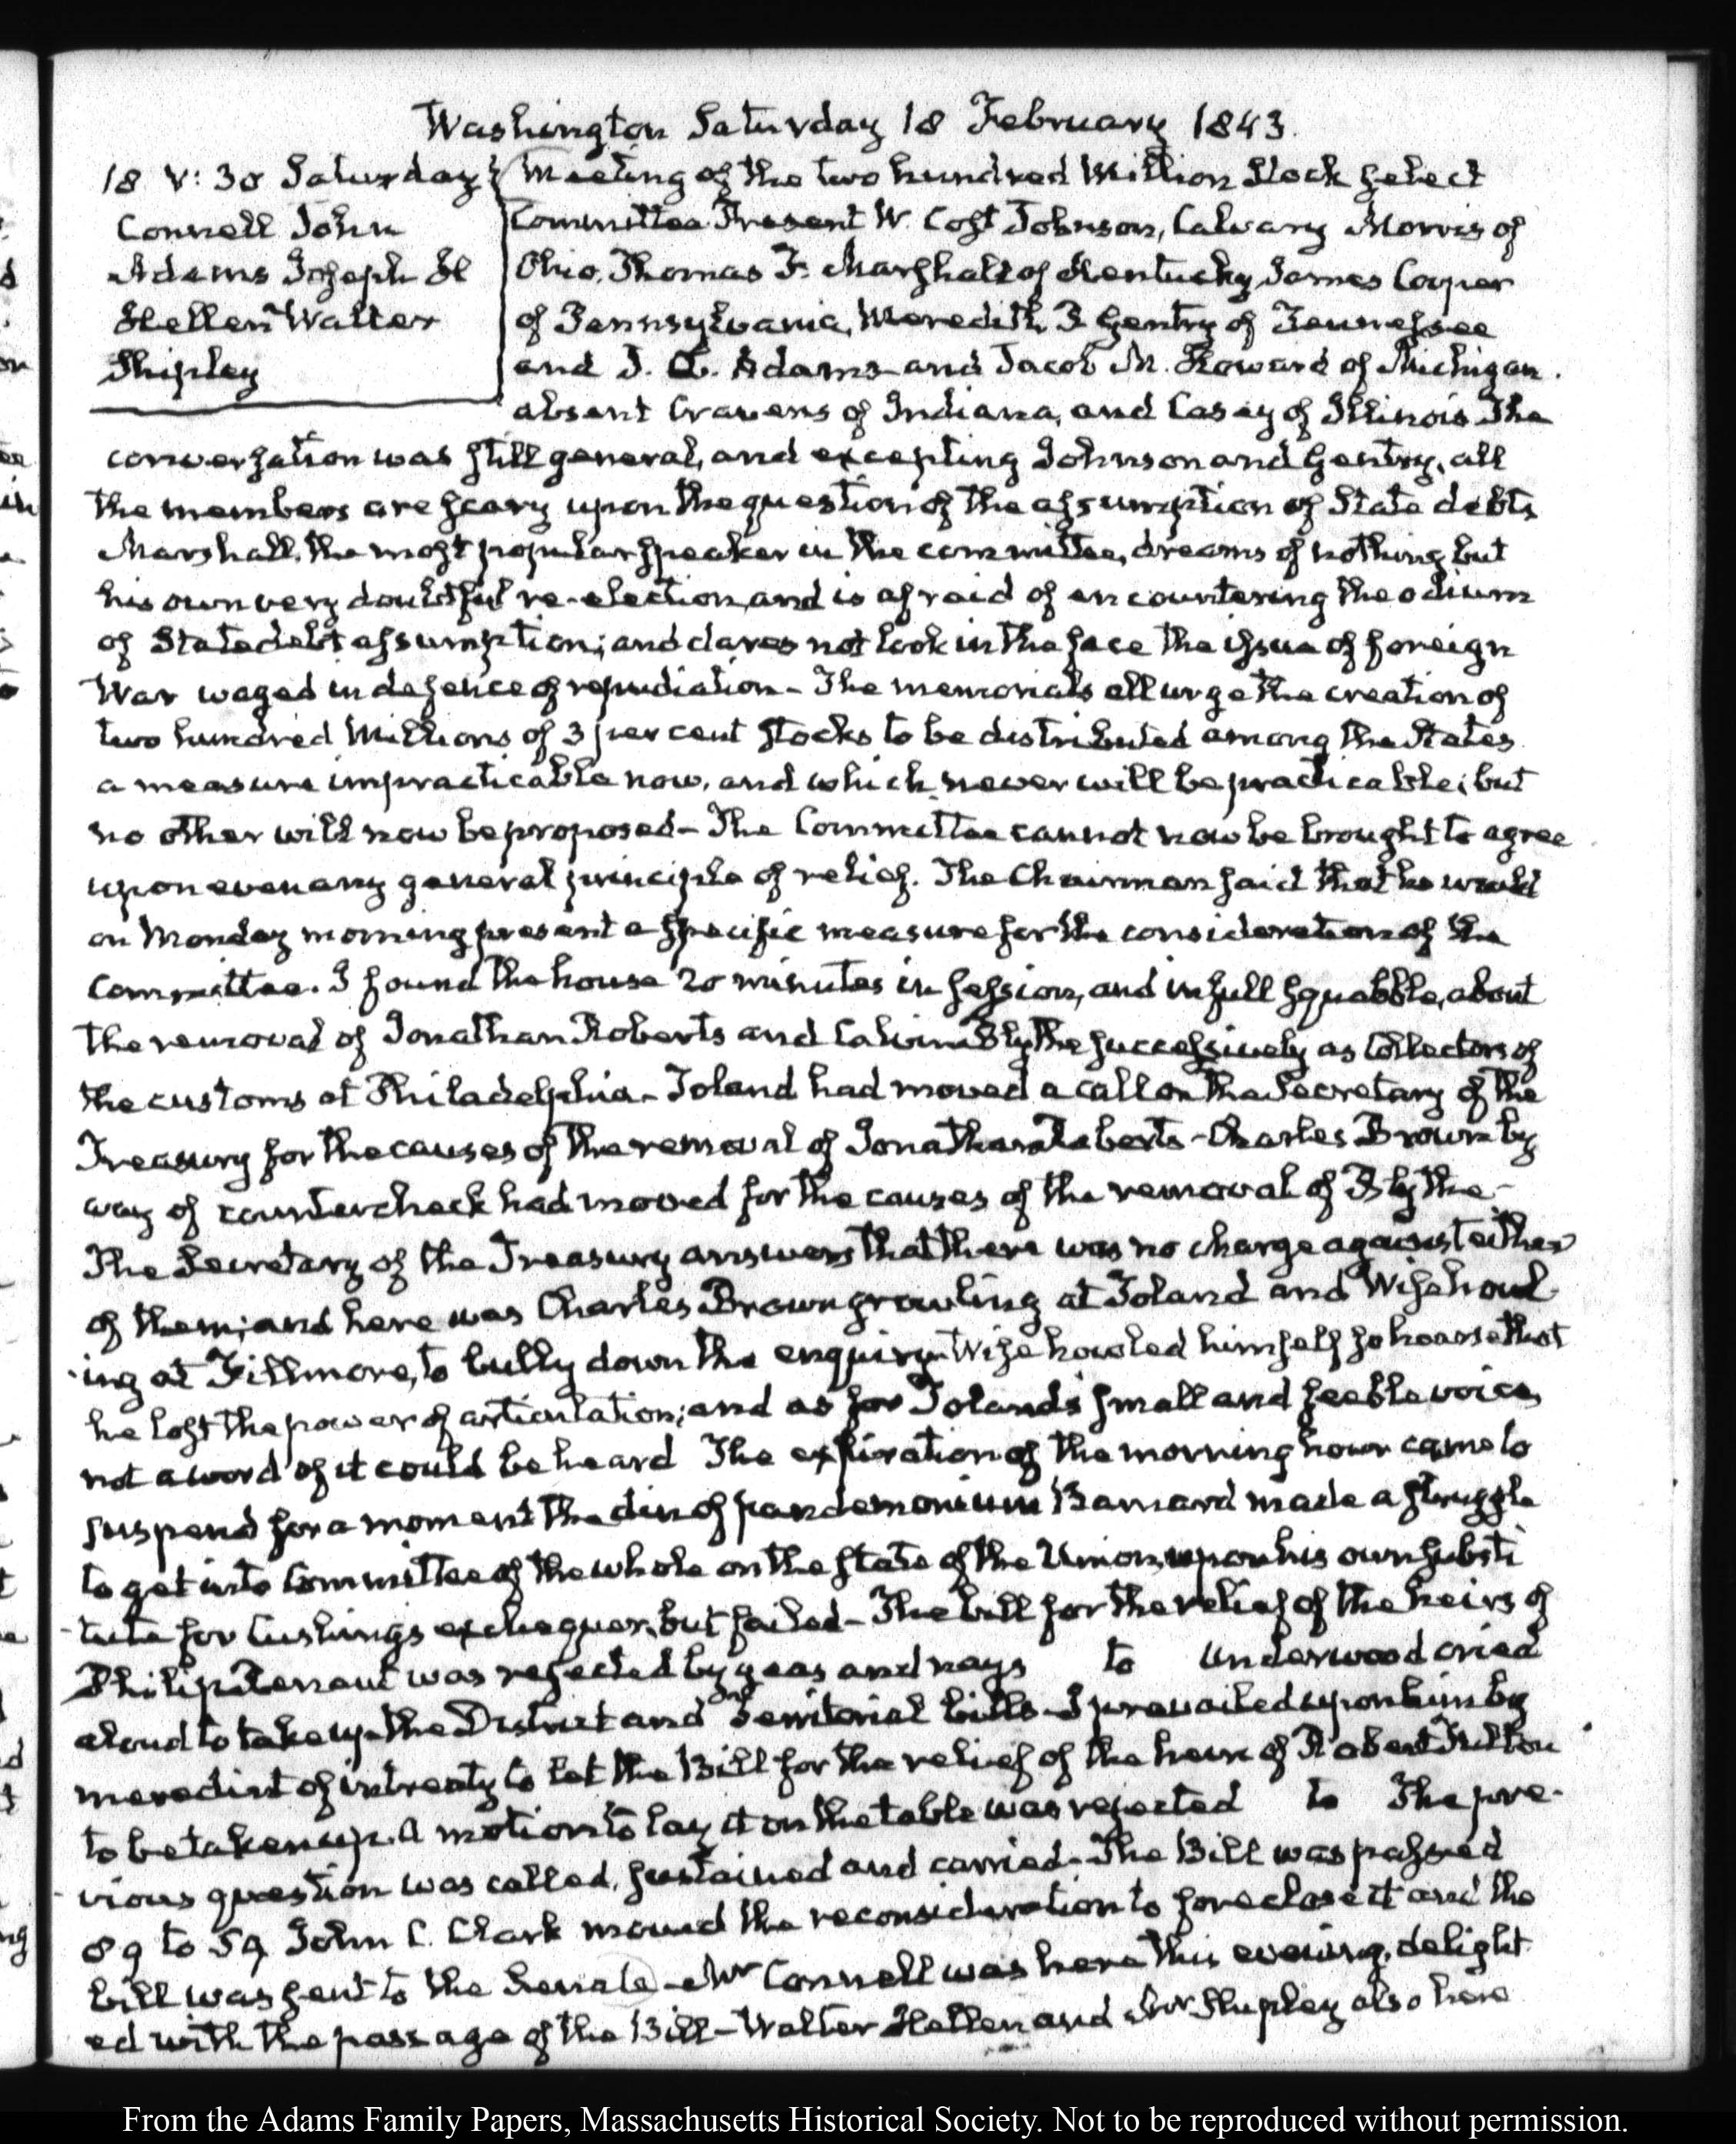 Washington Saturday 18 February 1843.
18 V: 30 Saturday
Connell John
Adams Joseph H
Hellen Walter
Shipley
Meeting of the two hundred Million Stock select
Committee. Present W. Cost Johnson, Calvary Morris of
Ohio, Thomas F. Marshall of Kentucky James Cooper
of Pennsylvania, Meredith P. Gentry of Tennessee
and J. Q. Adams and Jacob M. Howard of Michigan.
absent Cravens of Indiana, and Casey of Illinois. The
conversation was still general, and excepting Johnson and Gentry, all
the members are scary upon the question of the assumption of State debts,
Marshall, the most popular speaker in the committee, dreams of nothing but
his own very doubtful re-election, and is afraid of encountering the odium
of State debt assumption; and dares not look in the face the issue of foreign
War waged in defence of repudiation - The memorials all urge the creation of
two hundred Millions of 3 per cent stocks to be distributed among the States
a measure impracticable now, and which never will be practicable; but
no other will now be proposed - The Committee cannot now be brought to agree
upon even any general principle of relief. The Chairman said that he would
on Monday morning present a specific measure for the consideration of the
Committee. I found the house 20 minutes in session, and in full squabble, about
the removal of Jonathan Roberts and Calvin Blythe successively as Collectors of
the customs at Philadelphia - Toland had moved a call on the Secretary of the
Treasury for the causes of the removal of Jonathan Roberts - Charles Brown by
way of countercheck had moved for the causes of the removal of Blythe -
The Secretary of the Treasury answers that there was no charge against either
of them; and here was Charles Brown growling at Toland and Wise howl-
ing at Fillmore, to bully down the enquiry. Wise howled himself so hoarse that
he lost the power of articulation; and as for Toland's small and feeble voice,
not a word of it could be heard The expiration of the morning hour came to
suspend for a moment the din of pandemonium Barnard made a struggle
to get into Committee of the whole on the state of the Union, upon his own substi
tute for Cushing's exchequer, but failed - The bill for the relief of the heirs of
Philip Renaut was rejected by yeas and nays to Underwood cried
aloud to take up the District and Territorial bills - I prevailed upon him by
mere dint of intreaty to let the Bill for the relief of the heirs of Robert Fulton
to be taken up. A motion to lay it on the table was rejected to The pre-
vious question was called, sustained and carried - The Bill was passed
89 to 59 John C. Clark moved the reconsideration to foreclose it and the
bill was sent to the Senate - Mr Connell was here this evening, delight
ed with the passage of the Bill - Walter Hellen and Mr Shipley also here
From the Adams Family Papers, Massachusetts Historical Society. Not to be reproduced without permission.